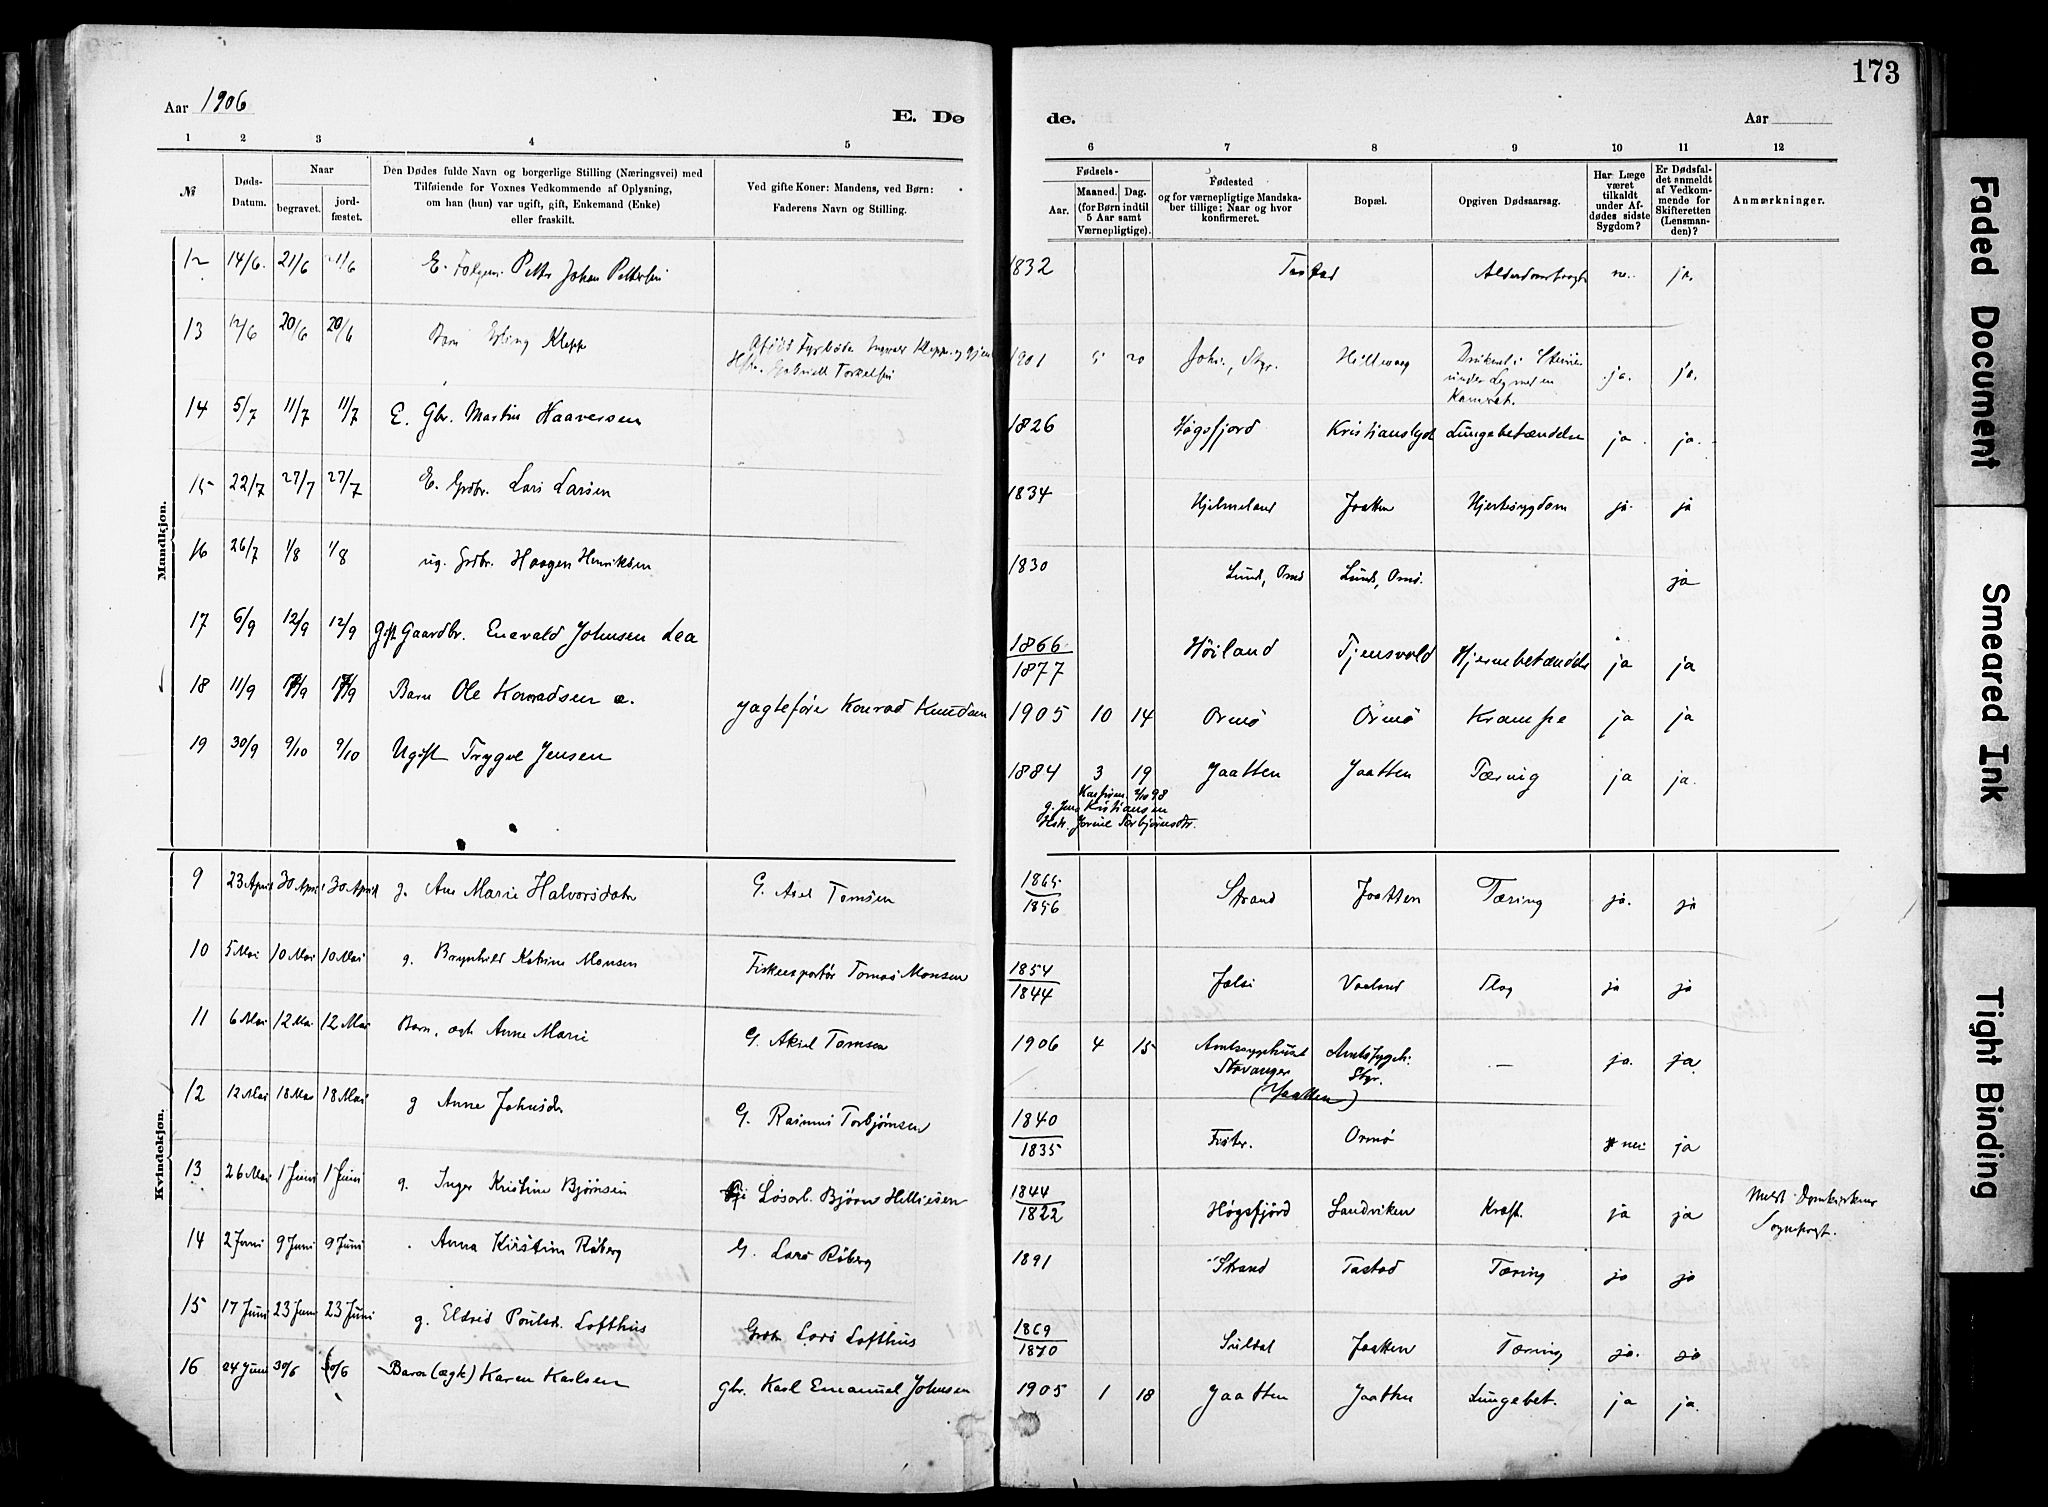 Aar 1906
E. Dø
de.
Aar
173
1 2 3 4 5 6 7 8 9 10 11 12
№
Døds-
Datum.
Naar
begravet.
jord-
fæstet.
Den Dødes fulde Navn og borgerlige Stilling (Næringsvei) med
Tilføiende for Voxnes Vedkommende af Oplysning,
om han (hun) var ugift, gift, Enkemand (Enke)
eller fraskilt.
Ved gifte Koner: Mandens, ved Børn:
Faderens Navn og Stilling.
Fødsels-
Aar.
Maaned. Dag.
(for Børn indtil
5 Aar samt
Værnepligtige).
Fødested
og for værnepligtige Mandska-
ber tillige: Naar og hvor
konfirmeret.
Bopæl.
Opgiven Dødsaarsag.
Har Læge
været
tilkaldt
under Af-
dødes sidste
Sygdom?
Er Dødsfal-
det anmeldt
af Vedkom-
mende for
Skifteretten
(Lensman-
den)?
Anmærkninger.
Mandkjøn.
12 14/6. 21/6 21/6 E. Petter Johan Pettersen 1832 Tastad ja.
13 12/6 20/6 20/6 Barn Erling Klepp 1901 5 20 Hillevaag ja. ja.
14 5/7 11/7 11/7 E. Gbr. Martin Haaversen 1826 Høgsfjord Kristianslyst Lungebetændelse ja ja.
15 22/7 27/7 27/7 E. Grdbr. Lars Larsen 1834 Hjelmeland Jaatten Hjertesygdom ja. ja
16 26/7 1/8 1/8 ug. Grdbr. Haagen Henriksen 1830 Lund, Ormø Lund, Ormø. ja
17 6/9 12/9 12/9 Gift Gaardbr. Enevald Johnsen Lea 1866/1877 Høiland Tjensvold Hjernebetændelse ja ja
18 11/9 17/9 17/9 Barn Ole Konradsen æ. Jagtefører Konrad Knudsen 1905 10 14 Ormø Ormø Krampe ja ja
19 30/9 9/10 9/10 Ugift Trygve Jensen 1884 3 19 Jaatten Jaatten Tæring ja ja.
Konfirm. 2/10 98
g. Jens Kristiansen
Hstr. Jorine Torbjørnsdtr.
Kvindekjøn.
9 23 April 30 April 30 April g. Ane Marie Halvorsdatter G. Axel Tomsen 1865/1856 Strand Jaatten Tæring ja. ja
10 5 Mai 10 Mai 10 Mai g. Brynhild Katrine Monsen Fiskeexportør Tomas Monsen 1854/1844 Jelsi Vaaland Slag ja ja
11 6 Mai 12 Mai 12 Mai Barn, ægt. Anne Marie G. Aksel Tomsen 1906 4 15 Amtssygehuset Stavanger (Jaatten) Amtssygeh. Stgr. — ja. ja
12 12 Mai 18 Mai 18 Mai g Anne Johnsdr G. Rasmus Torbjørnsen 1840/1835 Fister. Ormø nei ja
13 26 Mai 1 Juni 1 Juni g. Inger Kristine Bjørnsen Løsarb. Bjørn Helliesen 1844/1822 Høgsfjord Sandviken Kræft. ja ja Meldt Domkirkens
Sogneprest.
14 2 Juni 9 Juni 9 Juni Anna Kirstine Røberg G. Lars Røberg 1891 Strand Tastad Tæring ja ja
15 17 Juni 23 Juni 23 Juni g. Eldrid Poulsdr. Lofthus Grdbr. Lars Lofthus 1869/1870 Suldal Jaatten Tæring ja. ja
16 24 Juni 30/6 30/6 Barn (ægte) Karen Karlsen Gbr. Karl Emanuel Johnsen 1905 1 18 Jaatten Jaatten Lungebet. ja ja.
Faded Document
Smeared Ink
Tight Binding